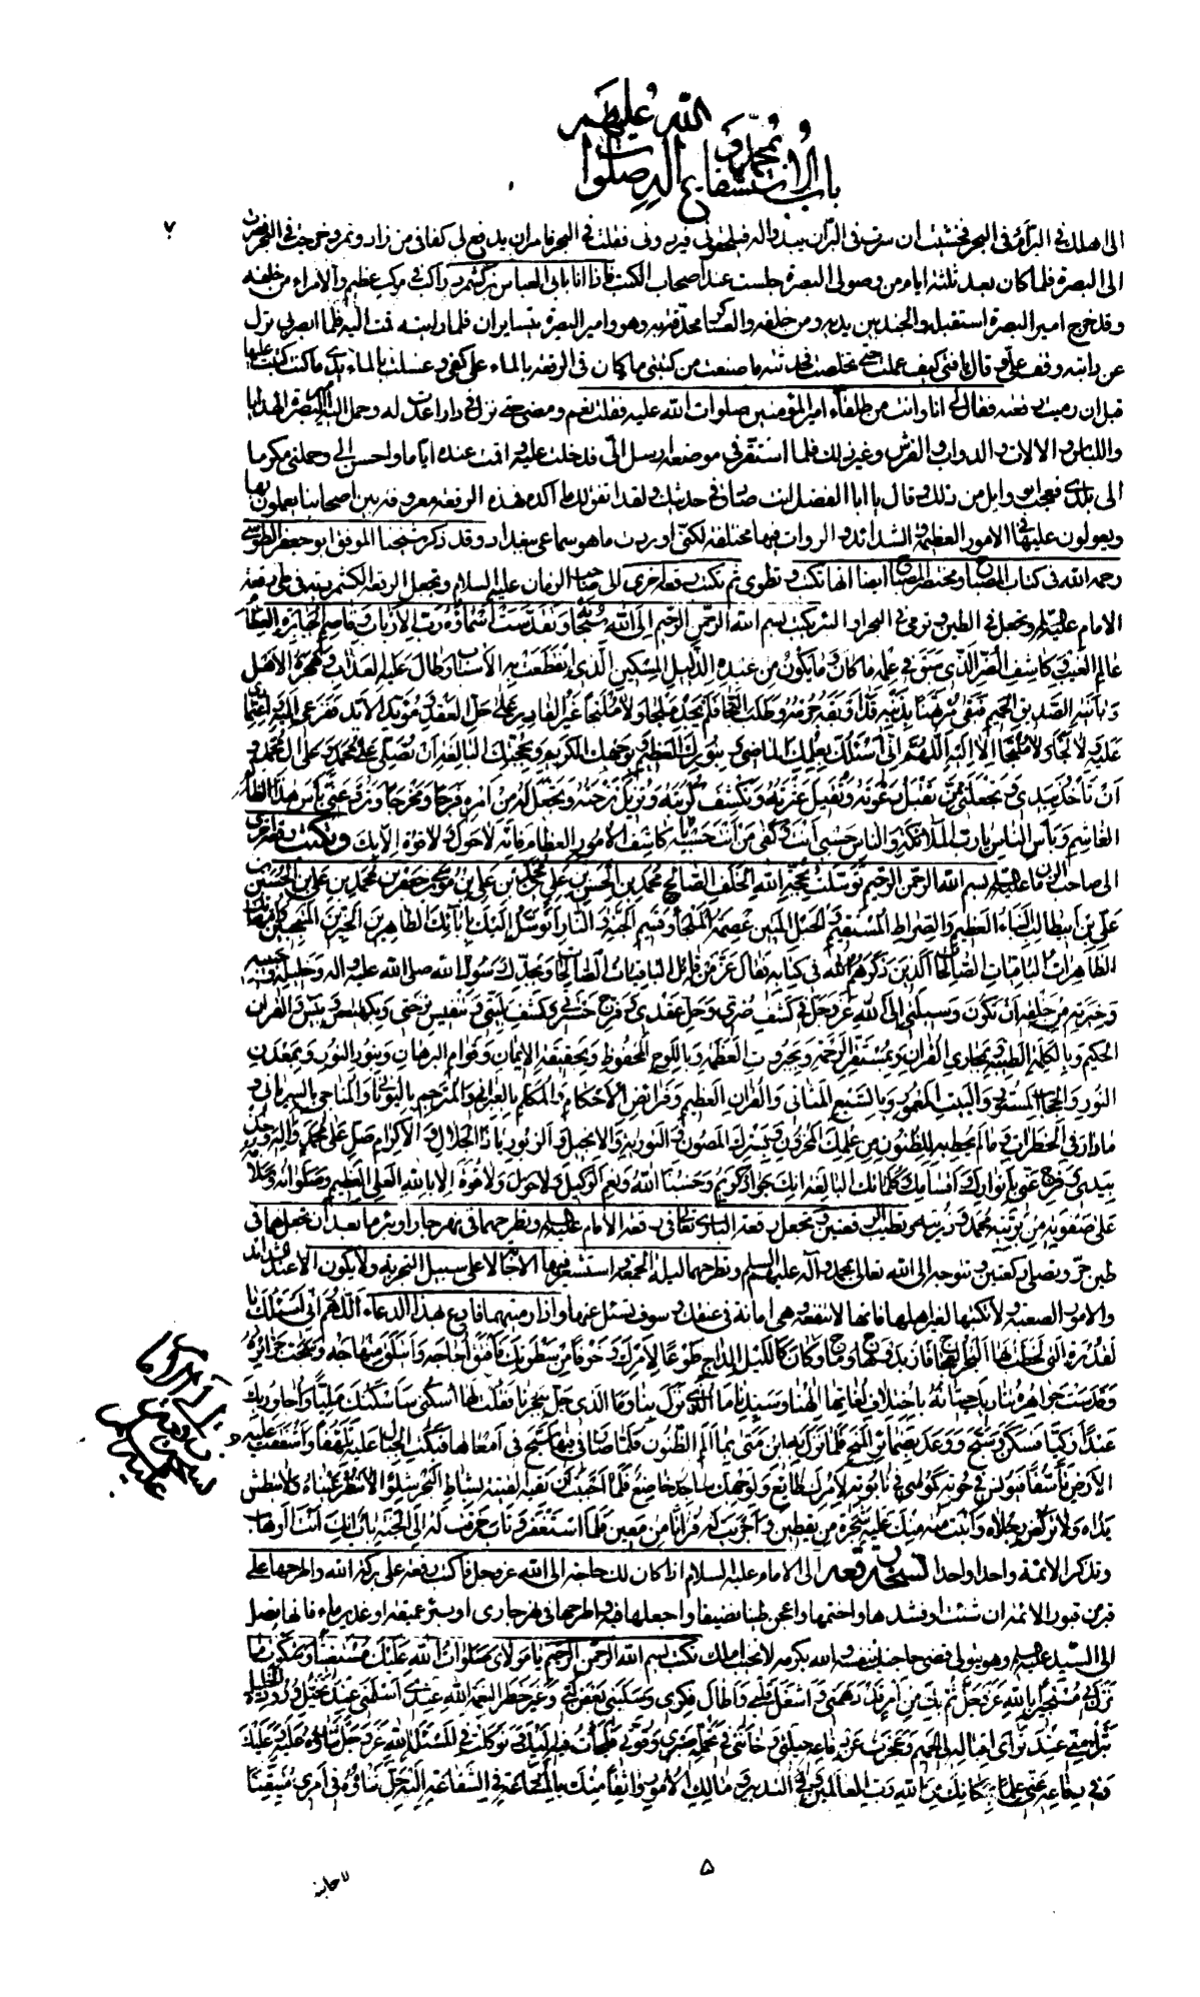 باب الاستشفاع بمحمد وآله صلوات الله عليهم
٧
الى اهلك في البر أم في البحر فخشيت ان سرت في البر أن يبدو له فيلحقوني فيردوني فقلت في البحر فامر ان يدفع لي كفافي من زاد وتمر وخرجت في البحر
الى البصرة فلما كان بعد ثلثة ايام من وصولي البصرة جلست عند اصحاب الكتب فاذا انا بابي العباس بن كشمرد راكب في مركب عظيم والامراء من خلفه
وقد خرج امير البصرة استقبله والجند بين يديه ومن خلفه والعساكر محدقة به وهو وامير البصرة يتسايران فلما رايته قمت اليه فلما ابصرني نزل
عن دابته ووقف علي وقال يا فتى كيف عملت حتى تخلصت فحدثته ما صنعت من كتبتي ما كان في الرقعة بالماء على كفي وغسلت بالماء يدي ما كنت كتبت عليها
قبل ان رميت رقعته فقال لي انا وانت من طلقاء امير المؤمنين صلوات الله عليه فقلت نعم ومضى حتى نزل في دار اعدت له وحمل اليه امير البصرة الهدايا
واللباس والالات والدواب والفرش وغير ذلك فلما استقر في موضعه ارسل الي فدخلت عليه واقمت عنده اياما واحسن الي وحملني مكرما
الى بلدي فعجب ابو وابل من ذلك وقال يا ابا الفضل انت صادق في حديثك ولقد اتفق لك ما اكده هذه الرقعة معروفة بين اصحابنا يعملون بها
ويعولون عليها في الامور العظيمة والشدائد والروايات فيها مختلفة لكني اوردت ما هو سماعي ببغداد وقد ذكر شيخنا الموفق ابو جعفر الطوسي
رحمه الله في كتاب المصباح ومختصر المصباح ايضا انها تكتب وتطوى ثم تكتب رقعة اخرى الى صاحب الزمان عليه السلام وتجعل الرقعة الكشمردية في طي رقعة
الامام عليه السلام وتجعل في الطين وترمى في البحر او البئر يكتب بسم الله الرحمن الرحيم الى الله سبحانه وتقدست اسماؤه رب الارباب وقاصم الجبابرة العظام
عالم الغيب وكاشف الضر الذي سبق في علمه ما كان وما يكون من عبده الذليل المسكين الذي انقطعت به الاسباب وطال عليه العذاب وهجره الاهل
وباينه الصديق الحميم فبقي مرتهنا بذنبه قد اوبقه جرمه وطلب النجا فلم يجد ملجا ولا ملتجا غير القادر على حل العقد ومؤبد الابد ففزعي اليه واعتمادي
عليه ولا لجا ولا ملتجا الا اليه اللهم اني اسئلك بعلمك الماضي وبنورك العظيم وبوجهك الكريم وبحجتك البالغة ان تصلي على محمد وعلى ال محمد و
ان تاخذ بيدي وتجعلني ممن تقبل دعوته وتقيل عثرته وتكشف كربته وتزيل ترحته وتجعل له من امره فرجا ومخرجا وترد عني باس هذا الظالم
الغاشم وباس الناس يا رب الملائكة والناس حسبي انت وكفى من انت حسبه يا كاشف الامور العظام فانه لا حول ولا قوة الا بك وتكتب رقعة اخرى
الى صاحب الزمان عليه السلام بسم الله الرحمن الرحيم توسلت بحجة الله الخلف الصالح محمد بن الحسن بن علي بن محمد بن علي بن موسى بن جعفر بن محمد بن علي بن الحسين بن
علي بن ابي طالب النباء العظيم والصراط المستقيم والحبل المتين عصمة الملجا وقسيم الجنة والنار اتوسل اليك بآبائك الطاهرين الخيرين المنتجبين وامهاتك
الطاهرات الباقيات الصالحات الذين ذكرهم الله في كتابه فقال عز من قائل الباقيات الصالحات وبجدك رسول الله صلى الله عليه واله وخليله وحبيبه
وخيرته من خلقه ان تكون وسيلتي الى الله عز وجل في كشف ضري وحل عقدي وفرج حسرتي وكشف بليتي وتنفيس ترحتي وبكهيعص وبيس والقرآن
الحكيم وبالكلمة الطيبة وبمجاري القرآن وبمستقر الرحمة وبجبروت العظمة وباللوح المحفوظ وبحقيقة الايمان وقوام البرهان وبنور النور وبمعدن
النور والحجاب المستور والبيت المعمور وبالسبع المثاني والقرآن العظيم وفرائض الاحكام والمكلم بالعبراني والمترجم باليوناني والمناجي بالسرياني و
ما دار في الخطرات وما لم يحط به للظنون من علمك المخزون وبسرك المصون والتورية والانجيل والزبور يا ذا الجلال والاكرام صل على محمد وآله وخذ
بيدي وفرج عني بانوارك واقسامك وكلماتك البالغة انك جواد كريم وحسبنا الله ونعم الوكيل ولا حول ولا قوة الا بالله العلي العظيم وصلواته وسلامه
على صفوته من بريته محمد وذريته وتطيب الرقعتين وتجعل رقعة الباري تعالى في رقعة الامام عليه السلام وتطرحهما في نهر جار او بئر ماء بعد ان تجعلهما في
طين حر وتصلي ركعتين وتتوجه الى الله تعالى بمحمد وآله عليهم السلام وتطرحهما ليلة الجمعة واستشعر فيها الاجابة لا على سبيل التجربة ولا يكون الا عند الشدائد
والامور الصعبة ولا تكتبها لغير اهلها فانها لا تنفعه وهي امانة في عنقك وسوف تسئل عنها واذا رميتهما فادع بهذا الدعاء اللهم اني اسئلك
بالقدرة التي لحظت بها البحر العجاج فازبد وهاج وماج وكان كالليل الداج طوعا لامرك وخوفا من سطوتك فافتق اجاجه وائتلق منهاجه وسبحت جزائره
وقدست جواهره تناديك حيتانه باختلاف لغاتها الهنا وسيدنا ما الذي نزل بنا وما الذي حل ببحرنا فقلت لها اسكني ساسكنك مليا واجاور بك
عبدا زكيا فسكن وسبح ووعد بضمائر المنح فلما نزل به ابن متى بما الم الظنون فلما صار في فيها سبح في امعائها فبكت الجبال عليه تلهفا واشفقت عليه
الارض تاسفا فيونس في حوته كموسى في تابوته لامرك طائع ولوجهك ساجد خاضع فلما احببت ان تقيه القيته بشاطي البحر شلوا لا تنظر عيناه ولا تبطش
يداه ولا تركض رجلاه وانبت منة منك عليه شجرة من يقطين واجريت له فراتا من معين فلما استغفر وتاب خرقت له الى الجنة بابا انك انت الوهاب
وتذكر الائمة واحدا واحدا نسخة رقعة الى الامام عليه السلام اذا كان لك حاجة الى الله عز وجل فاكتب رقعة على بركة الله واطرحها على
قبر من قبور الائمة ان شئت او فشدها واختمها واعجن طينا نظيفا واجعلها فيه واطرحها في نهر جاري او بئر عميقة او غدير ماء فانها تصل
الى السيد عليه السلام وهو يتولى قضى حاجتك بنفسه والله بكرمه لا يخيب املك تكتب بسم الله الرحمن الرحيم كتبت يا مولاي صلوات الله عليك مستغيثا وشكوت ما
نزل بي مستجيرا بالله عز وجل ثم بك من امر قد دهمني واشغل قلبي واطال فكري وسلبني بعض لبي وغير خطر النعمة لله عندي اسلمني عند تخيل وروده الخليل
تبرا مني عند ترائي اقباله الي الحميم وعجزت عن دفاعه حيلتي وخانني في تحمله صبري وقوتي فلجات فيه اليك وتوكلت في المسئلة لله عز وجل ثناؤه عليه وعليك
وفي دفاعه عني علما بمكانك من الله رب العالمين ولي التدبير ومالك الامور واثقا منك بالمسارعة في الشفاعة اليه جل ثناؤه في امري متيقنا
٥